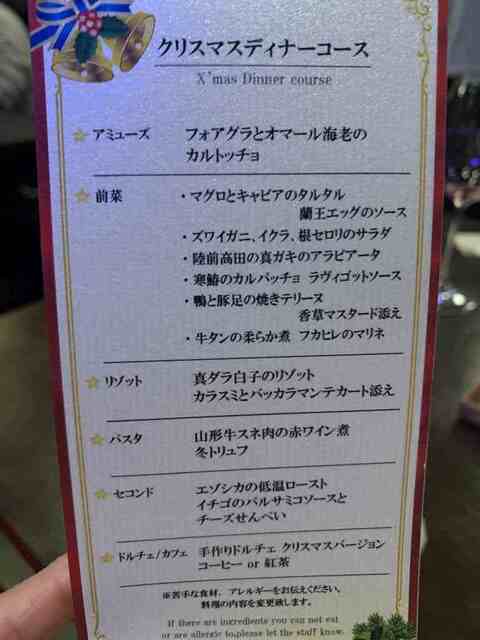 クリスマスディナーコース
X'mas Dinner course
アミューズ
フォアグラとオマール海老の
カルトッチョ
前菜
・マグロとキャビアのタルタル
蘭王エッグのソース
・ズワイガニ、イクラ、根セロリのサラダ
・陸前高田の真ガキのアラビアータ
・寒鰤のカルパッチョ ラヴィゴットソース
・鴨と豚足の焼きテリーヌ
香草マスタード添え
・牛タンの柔らか煮 フカヒレのマリネ
リゾット
真ダラ白子のリゾット
カラスミとバッカラマンテカート添え
パスタ
山形牛スネ肉の赤ワイン煮
冬トリュフ
セコンド
エゾシカの低温ロースト
イチゴのバルサミコソースと
チーズせんべい
ドルチェ/カフェ
手作りドルチェ クリスマスバージョン
コーヒー or 紅茶
※苦手な食材、アレルギーをお伝えください。
料理の内容を変更致します。
If there are ingredients you can not eat
or are allergic to,please let the staff know